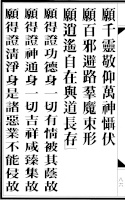 願千靈敬仰萬神懾伏
願百邪避路羣魔束形
願逍遙自在與道長存
願得證功德身一切有情被其蔭故
願得證神通身一切吉祥咸臻集故
願得證清淨身是諸惡業不能侵故